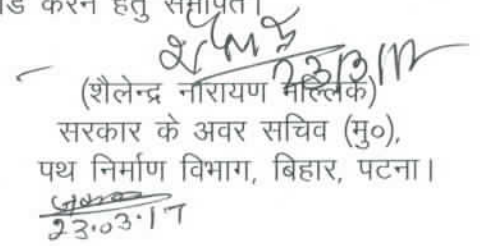 करने हेतु समर्पित।
23/3/17
(शैलेन्द्र नारायण मल्लिक)
सरकार के अवर सचिव (मु०),
पथ निर्माण विभाग, बिहार, पटना।
23.03.17